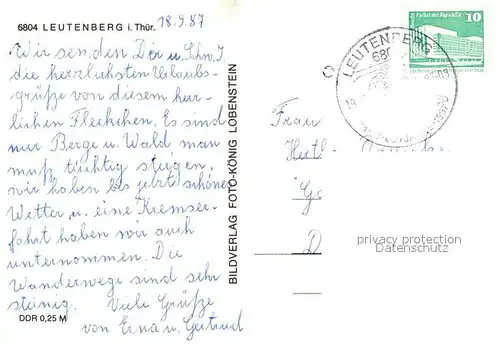 6804 LEUTENBERG i. Thür. 18.9.87
Wir senden Dir u.
die herzlichsten Urlaubs-
grüße von diesem herr-
lichen Fleckchen. Es sind
nur Berge u. Wald man
muß tüchtig steigen,
wir haben bis jetzt schönes
Wetter u. eine Kremser-
fahrt haben wir auch
unternommen. Die
Wanderwege sind sehr
steinig. Viele Grüße
von Erna u. Gertrud
DDR 0,25 M
BILDVERLAG FOTO-KÖNIG LOBENSTEIN
Palast der Republik 10
LEUTENBERG
Frau
D
privacy protection
Datenschutz